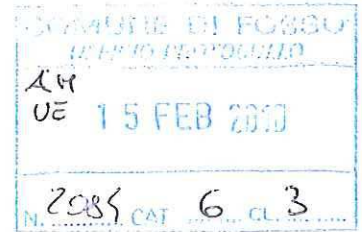 COMUNE DI FOSSO'
UFFICIO PROTOCOLLO
UE 15 FEB 2010
N. CAT 6 CL. 3